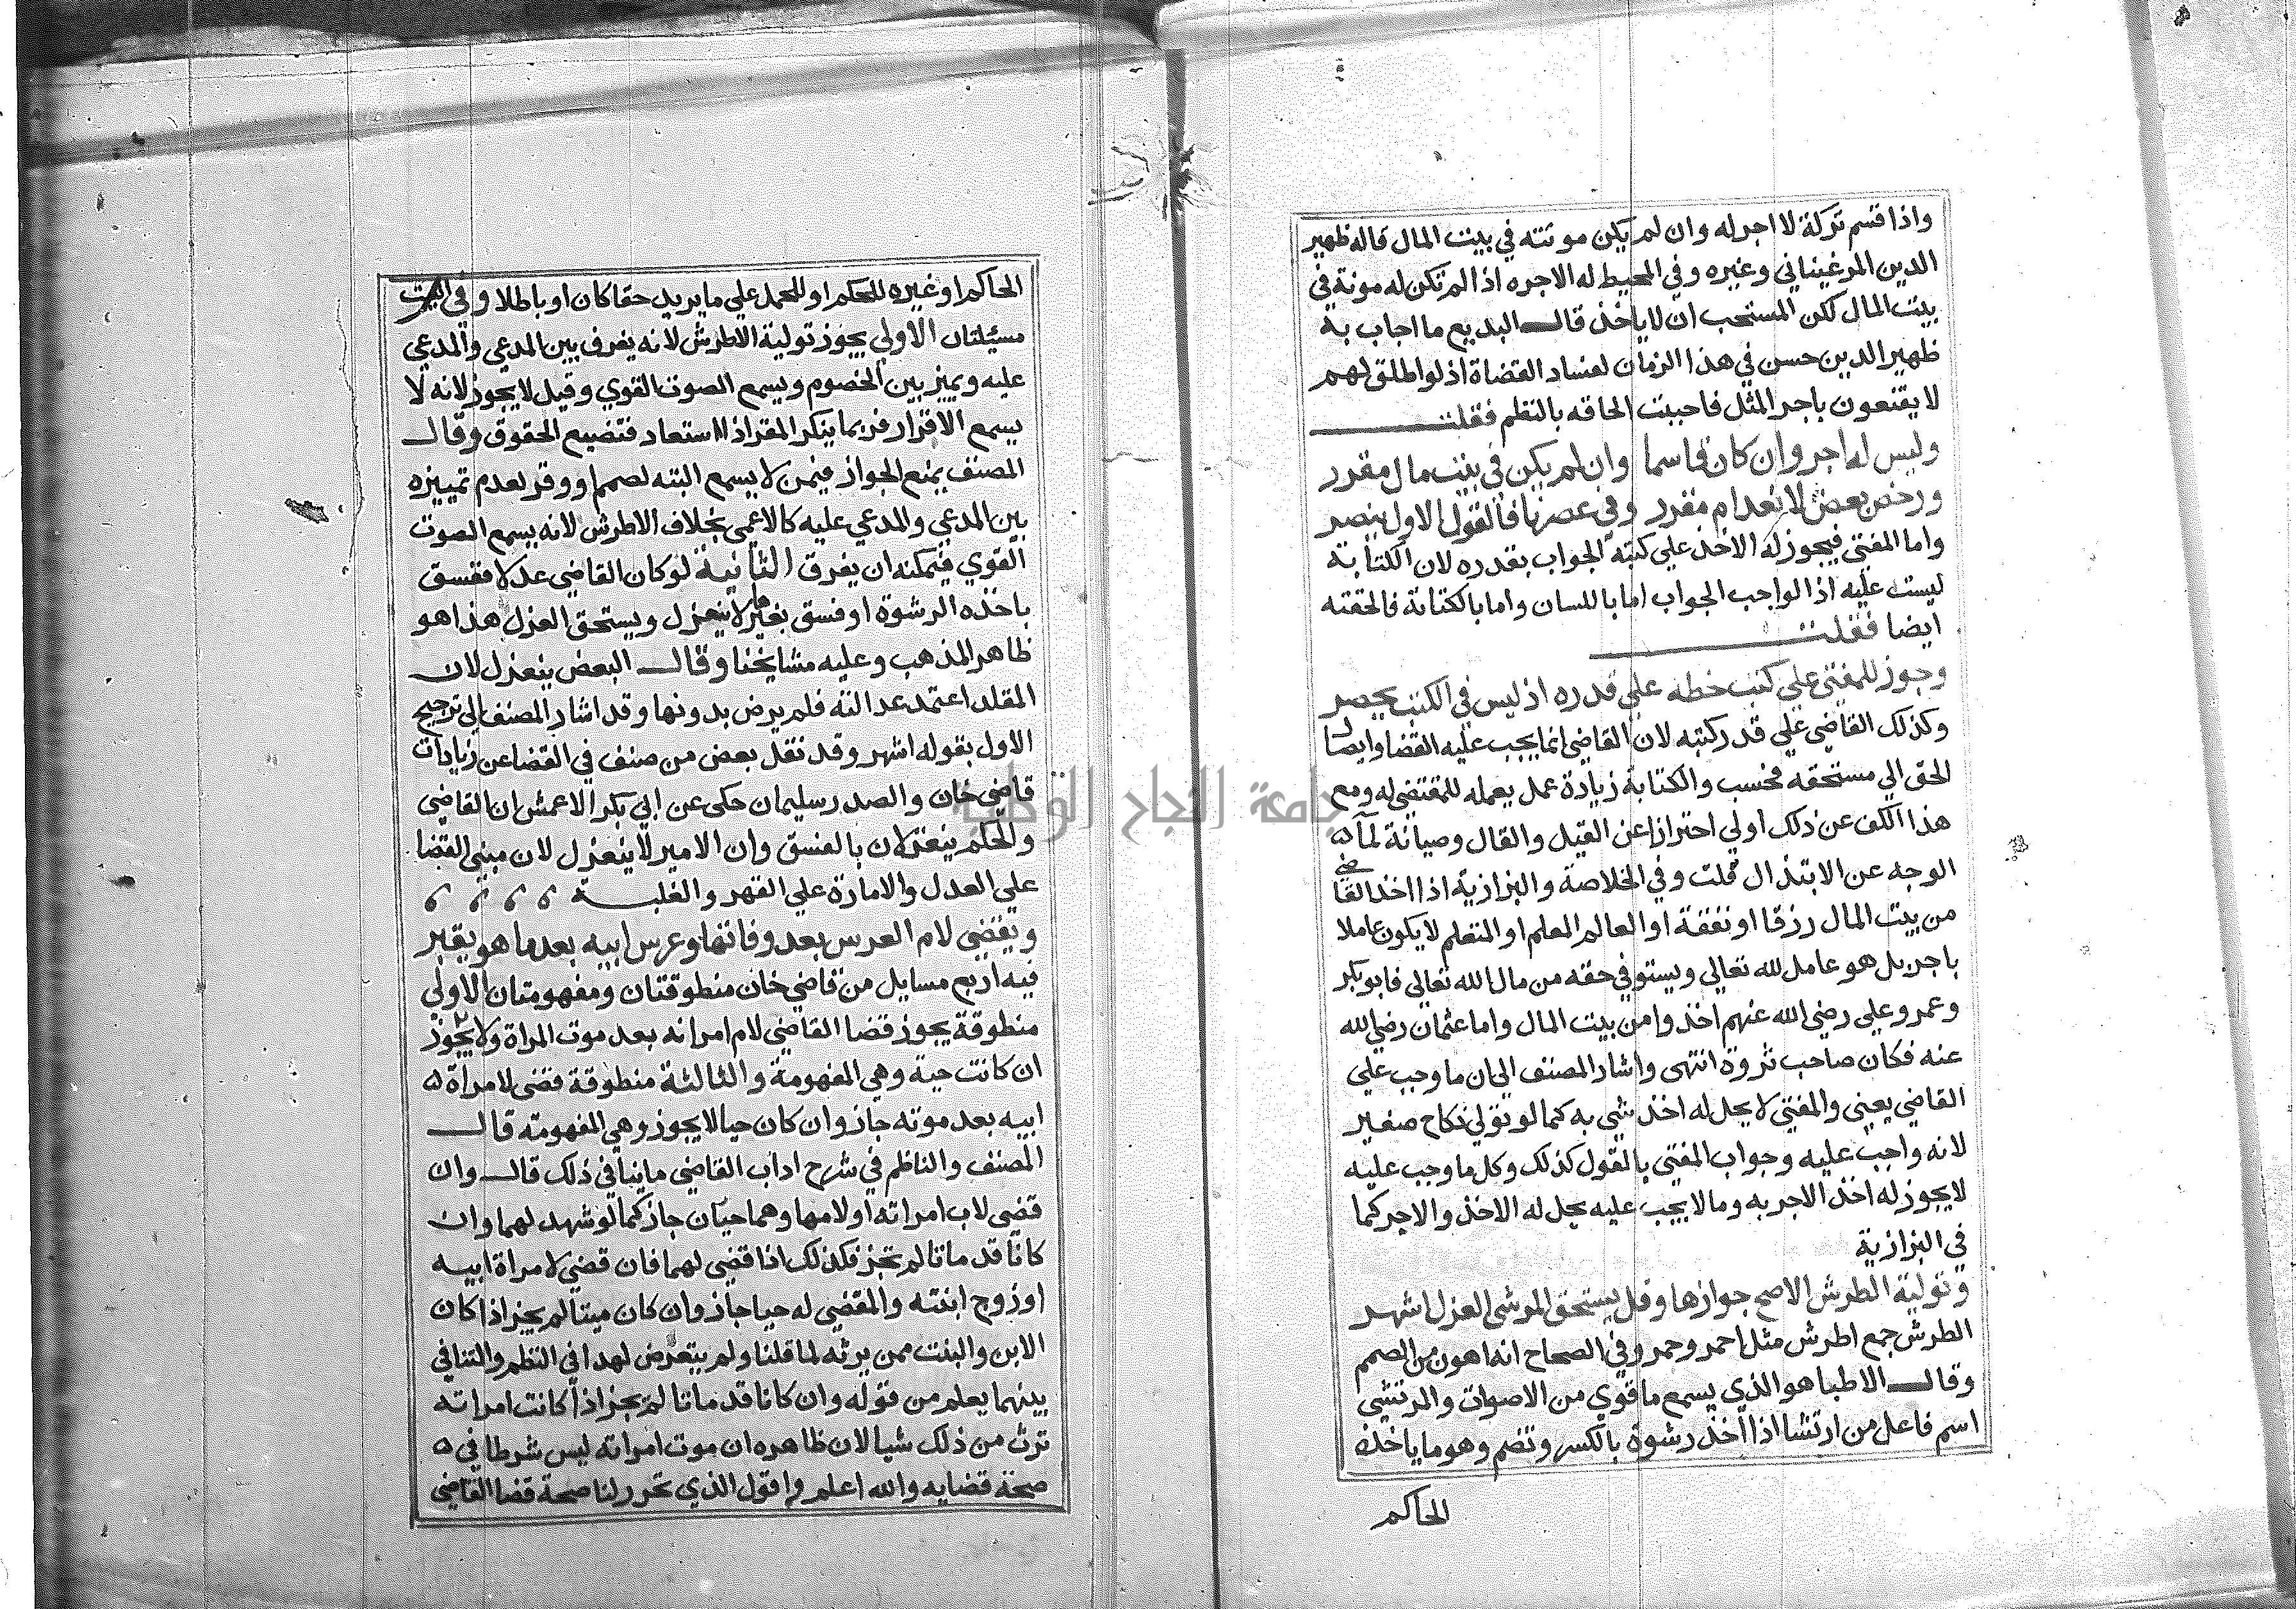 واذا قسم تركة لا اجر له وان لم يكن مونته في بيت المال قاله ظهير
الدين المرغيناني وغيره وفي المحيط له الاجره اذا لم تكن له مونة في
بيت المال لكن المستحب ان لا ياخذ قال البديع ما اجاب به
ظهير الدين حسن في هذا الزمان لفساد القضاة اذ لو اطلق لهم
لا يقنعون باجر المثل فاحببت الحاقه بالنظم فقلت
وليس له اجر وان كان قاسما وان لم يكن في بيت مال مقرر
ورخص بعض لانعدام مقرر وفي عصرنا فالقول الاول ينصر
واما المفتي فيجوز له الاخذ علي كتبه الجواب بقدره لان الكتابة
ليست عليه اذ الواجب الجواب اما باللسان واما بالكتابة فالحقته
ايضا فقلت
وجوز للمفتي علي كتب خطه علي قدره اذ ليس في الكتب يحصر
وكذلك القاضي علي قدر كتبه لان القاضي انما يجب عليه القضا وايصال
الحق الي مستحقه فحسب والكتابة زيادة عمل يعمله للمقتضي له ومع
هذا الكف عن ذلك اولي احترازا عن القيل والقال وصيانة لمآ
الوجه عن الابتذال قلت وفي الخلاصة والبزازية اذا اخذ القاضي
من بيت المال رزقا او نفقة او العالم المعلم او المتعلم لا يكون عاملا
باجر بل هو عامل لله تعالي ويستوفي حقه من مال الله تعالي فابو بكر
وعمر وعلي رضي الله عنهم اخذوا من بيت المال واما عثمان رضي الله
عنه فكان صاحب ثروة انتهى واشار المصنف الي ان ما وجب علي
القاضي يعني والمفتي لا يحل له اخذ شي به كما لو تولي نكاح صغير
لانه واجب عليه وجواب المفتي بالقول كذلك وكل ما وجب عليه
لا يجوز له اخذ الاجر به وما لا يجب عليه يحل له الاخذ والاجر كما
في البزازية
وتولية الطرش الاصح جوازها وقل يستحق المرشى العزل اشهر
الطرش جمع اطرش مثل احمر وحمر وفي الصحاح انه اهون من الصمم
وقال الاطبا هو الذي يسمع ما قوي من الاصوات والمرتشي
اسم فاعل من ارتشا اذا اخذ رشوة بالكسر وتضم وهو ما ياخذه
الحاكم
الحاكم او غيره للحكم او للحمد علي ما يريد حقا كان او باطلا وفي البيت
مسئلتان الاولي يجوز تولية الاطرش لانه يفرق بين المدعي والمدعي
عليه ويميز بين الخصوم ويسمع الصوت القوي وقيل لا يجوز لانه لا
يسمع الاقرار فربما ينكر المقر اذا استعاد فتضيع الحقوق وقال
المصنف يمنع الجواز فيمن لا يسمع البته لصمم او وقر لعدم تمييزه
بين المدعي والمدعي عليه كالاعمي بخلاف الاطرش لانه يسمع الصوت
القوي فيمكنه ان يفرق الثانية لو كان القاضي عدلا ففسق
باخذه الرشوة او فسق بغيرها لا ينعزل ويستحق العزل هذا هو
ظاهر المذهب وعليه مشايخنا وقال البعض ينعزل لان
المقلد اعتمد عدالته فلم يرض بدونها وقد اشار المصنف الي ترجيح
الاول بقوله اشهر وقد نقل بعض من صنف في القضا عن زيادات
قاضي خان والصدر سليمان حكى عن ابي بكر الاعمش ان القاضي
والحكم ينعزلان بالفسق وان الامير لا ينعزل لان مبني القضا
علي العدل والامارة علي القهر والغلبة
ويقضي لام العرس بعد وفاتها وعرس ابيه بعد ما هو يقبر
فيه اربع مسايل من قاضي خان منطوقتان ومفهومتان الاولي
منطوقة يجوز قضا القاضي لام امراته بعد موت المراة ولا يجوز
ان كانت حية وهي المفهومة والثالثة منطوقة قضى لامراة
ابيه بعد موته جاز وان كان حيا لا يجوز وهي المفهومة قال
المصنف والناظم في شرح اداب القاضي ما ينافي ذلك قال وان
قضي لاب امراته او لامها وهما حيان جاز كما لو شهد لهما وان
كانا قد ماتا لم تجز فكذلك اذا قضي لهما فان قضي لامراة ابيه
او زوج ابنته والمقضي له حيا جاز وان كان ميتا لم يجز اذا كان
الابن والبنت ممن يرثه لما قلنا ولم يتعرض لهذا في النظم والتنافي
بينهما يعلم من قوله وان كانا قد ماتا لم يجز اذا كانت امراته
ترث من ذلك شيا لان ظاهره ان موت امراته ليس شرطا في
صحة قضايه والله اعلم واقول الذي تحرر لنا صحة قضا القاضي
جامعة النجاح الوطنية